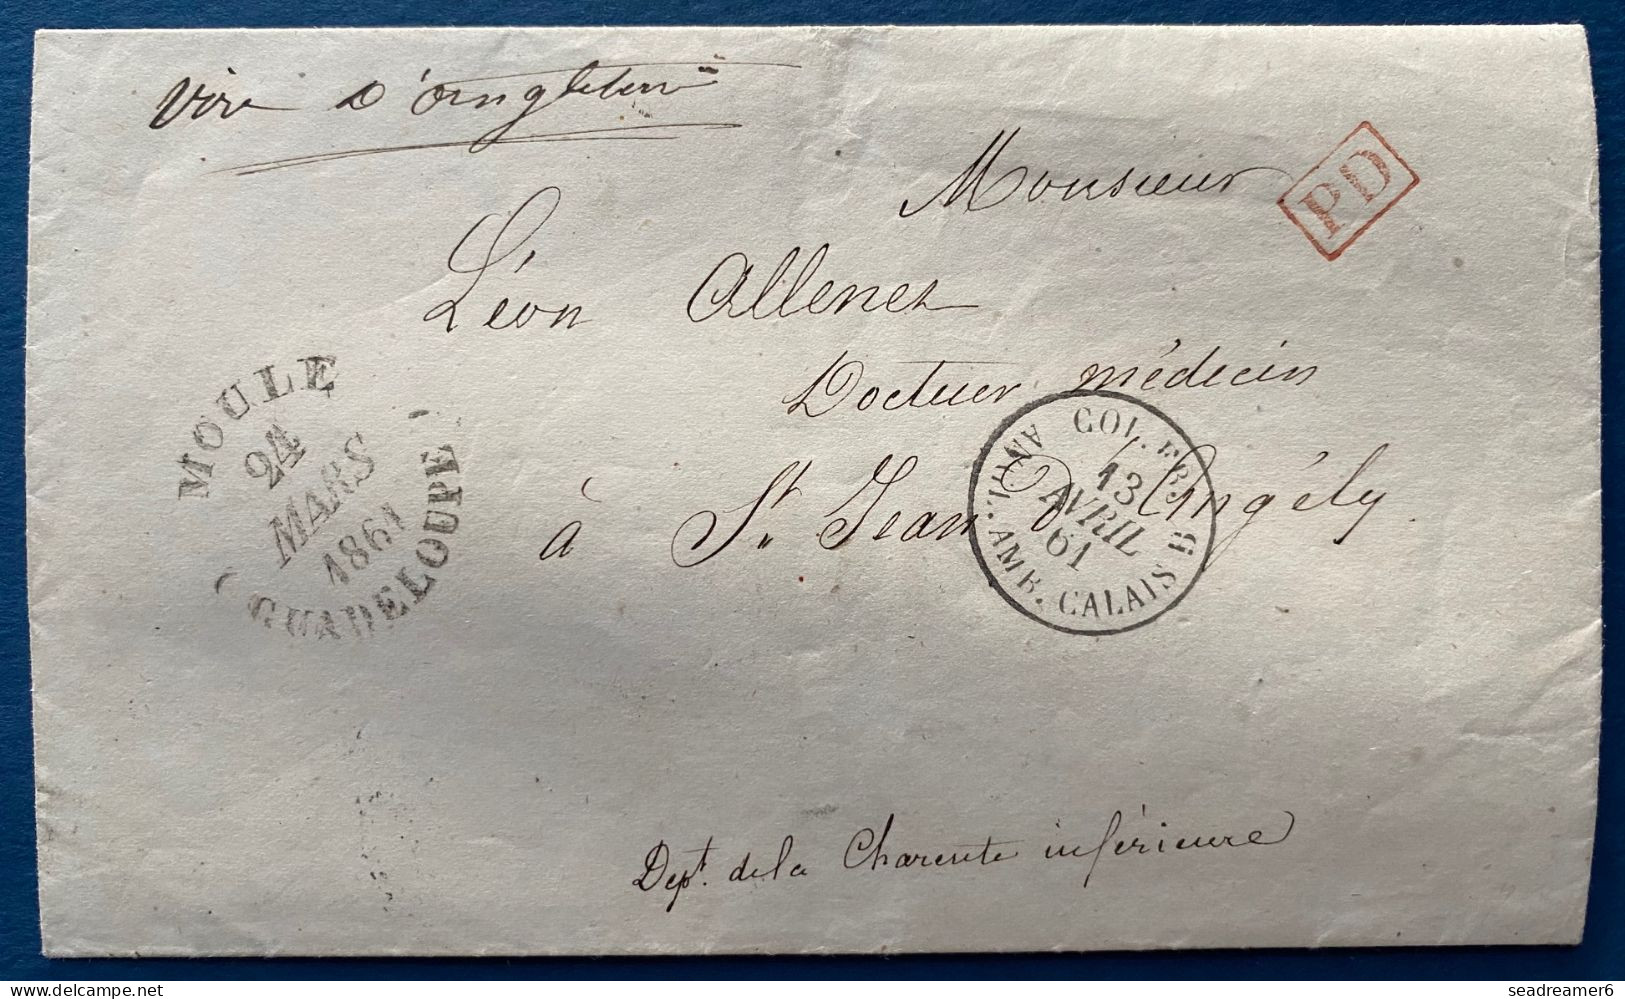 Voie d'Angleterre
Monsieur
PD
Léon Allenet
Docteur médecin
à St. Jean d'Angély
MOULE
24
MARS
1861
GUADELOUPE
COL. FR.
13
AVRIL
61
ANGL. AMB. CALAIS B
Dept. de la Charente inférieure
delcampe.net
seadreamer6